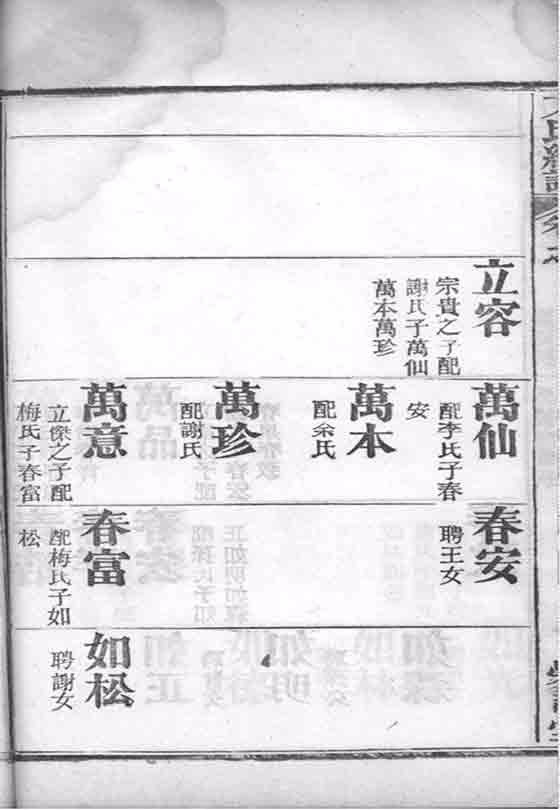 立容
宗貴之子配
謝氏子萬仙
萬本萬珍
萬仙
配李氏子春
安
萬本
配余氏
萬珍
配謝氏
萬意
立傑之子配
梅氏子春富
春安
聘王女
春富
配梅氏子如
松
如松
聘謝女